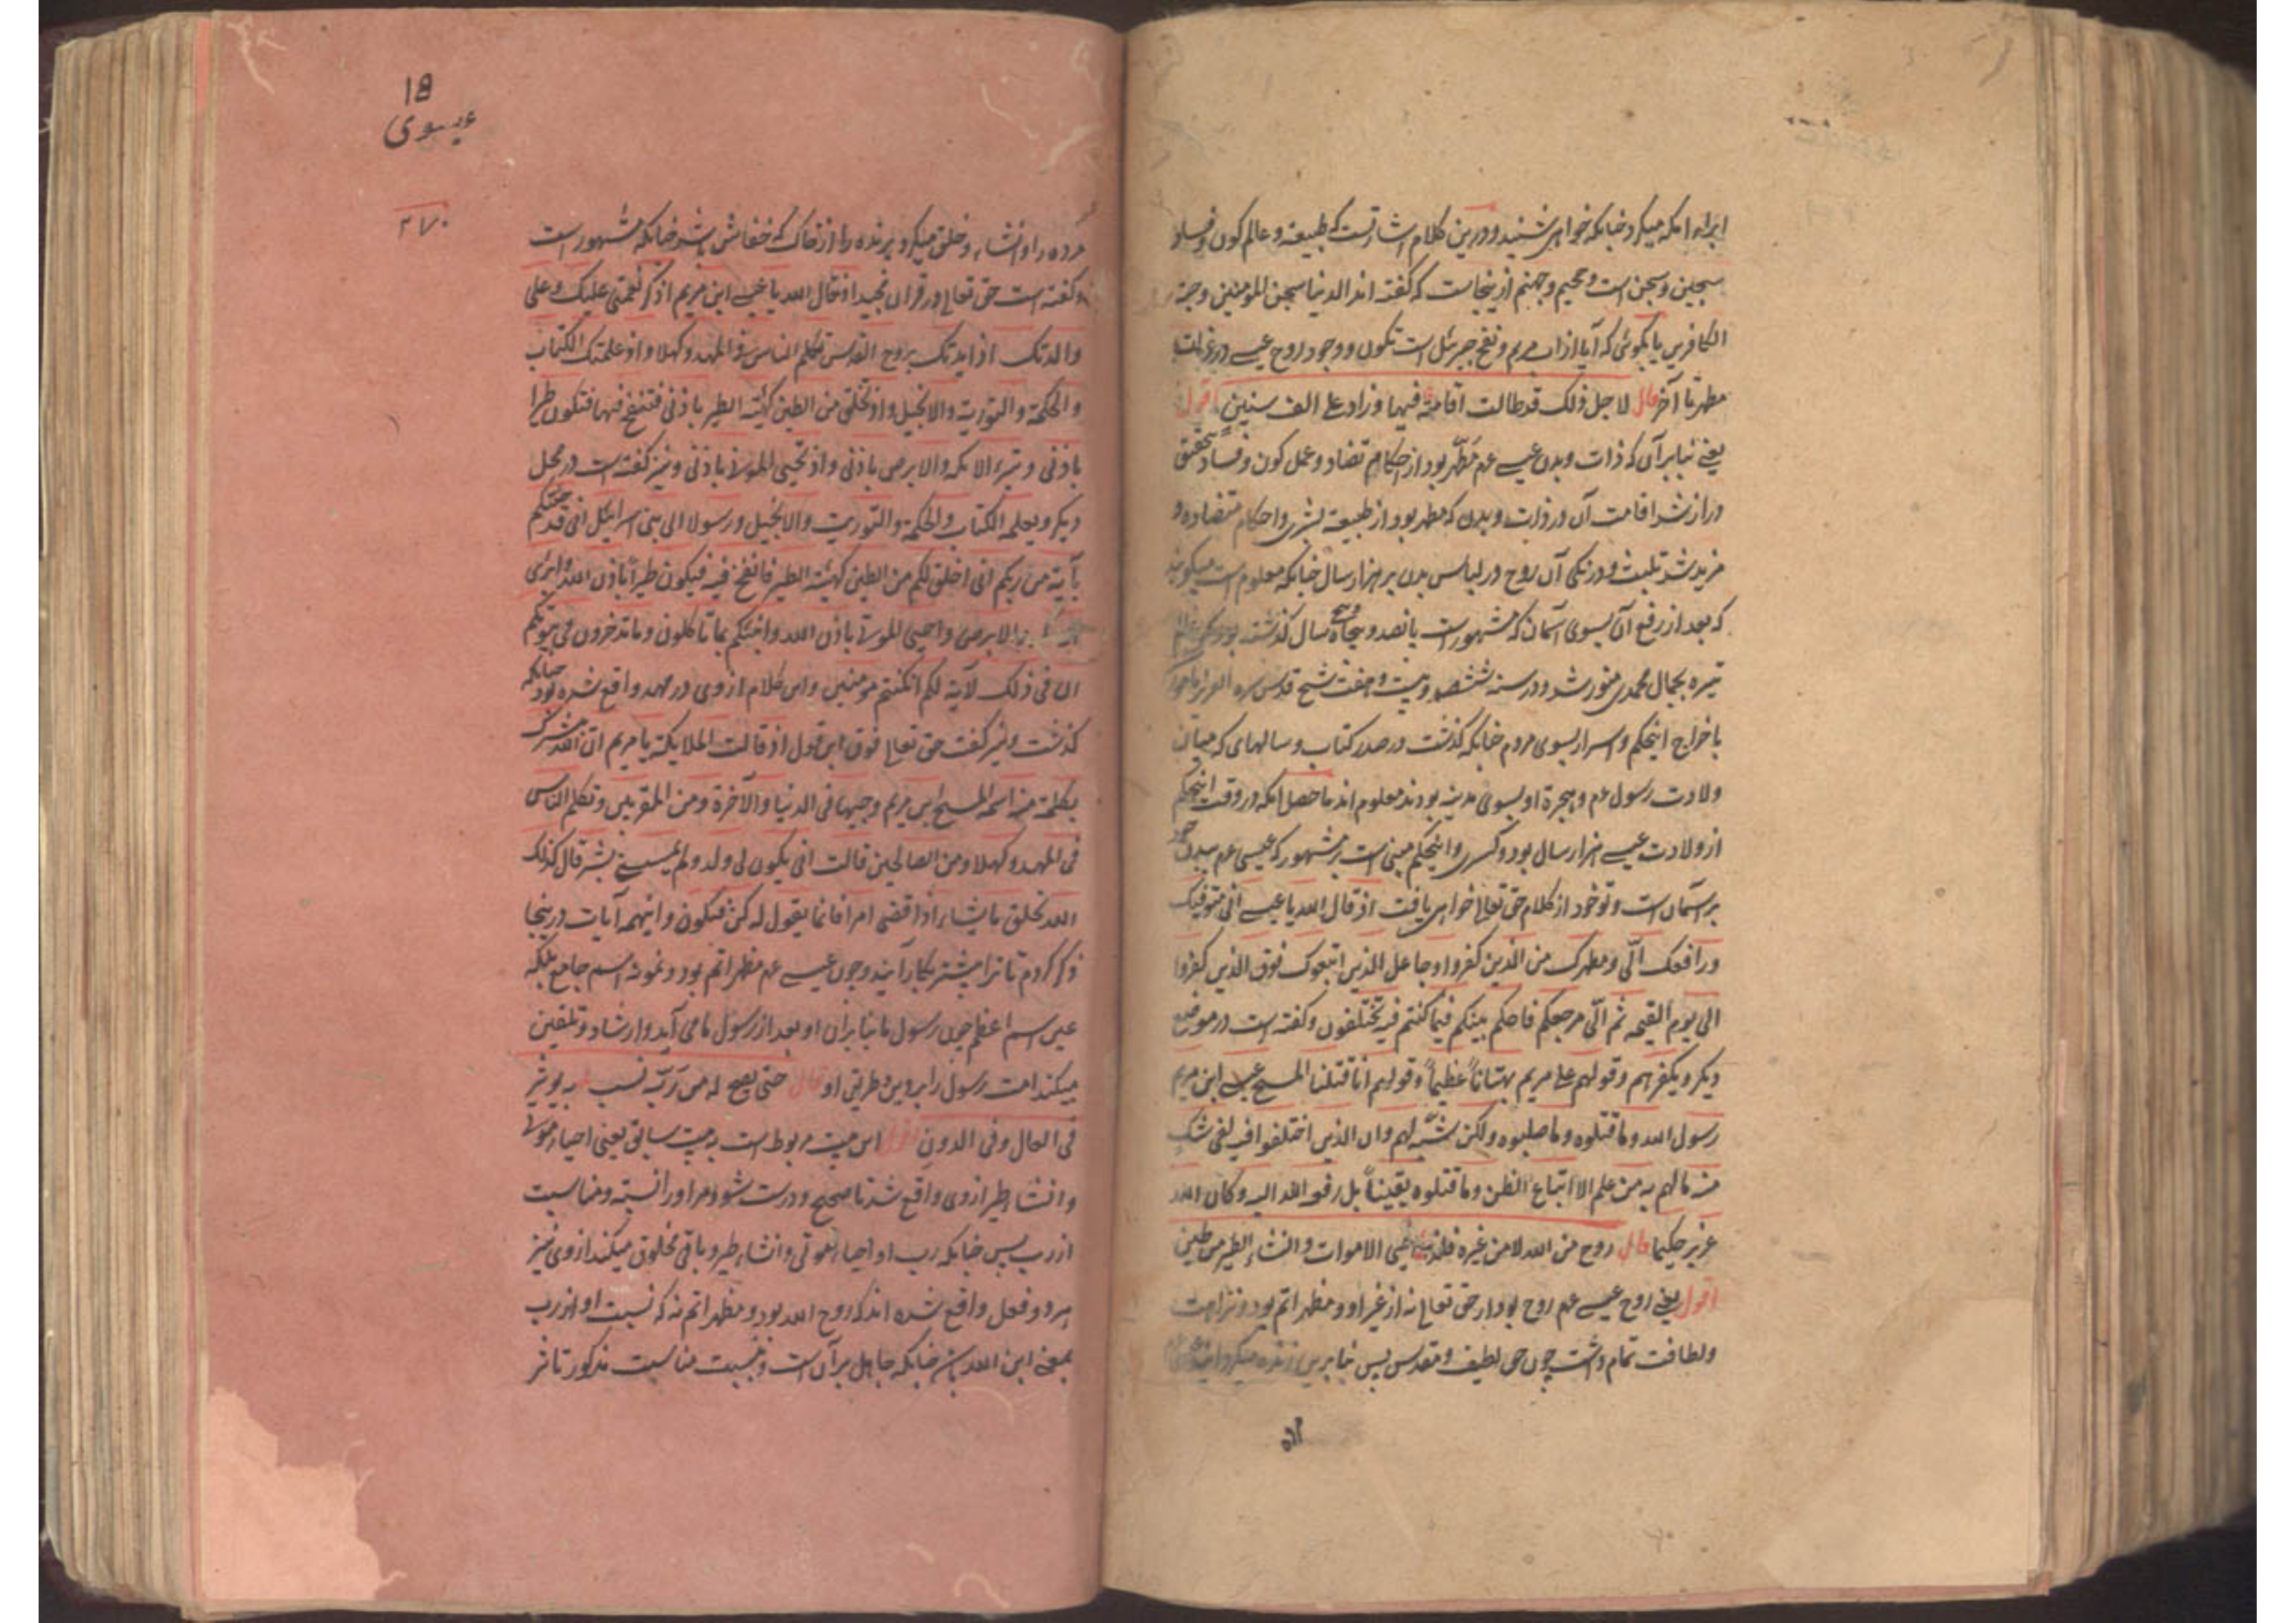 ابراء اکمه میکرد چنانکه خواهی شنید و درین کلام اشارتست که طبیعة و عالم کون و فساد
سجین و سجن است و جحیم و جهنم ازینجاست که گفته اند الدنیا سجن المؤمنین و جنة
الکافرین یا بگوئی که آیا از آب مریم و نفخ جبرئیل است تکون و وجود روح عیسے در ذات
مطهر تا آخر قال لاجل ذلک قد طالت اقامته فیها فزاد علی الف سنین اقول
یعنے بنابر آن که ذات و بدن عیسے عم مطهر بود از احکام تضاد و عمل کون و فساد متحقق
دراز شد اقامت آن در ذات و بدن که مطهر بود از طبیعة بشری و احکام متضاده و
مزید شد تلبث و درنگی آن روح در لباس بدن بر هزار سال چنانکه معلوم است میگویند
که بعد از رفع آن بسوی آسمان که مشهور است پانصد و پنجاه و پنج سال گذشته بود که عالم
تیره بجمال محمدی منور شد و در سنه ششصد و بیست و هفت شیخ قدس سره العزیز مامور
باخراج این حکم و اسرار بسوی مردم چنانکه گذشت در صدر کتاب و سالهای که میان
ولادت رسول عم و هجرة او بسوی مدینه بودند معلوم اند ماحصل آنکه در وقت این حکم
از ولادت عیسے هزار سال بود و کسری و این حکم مبنی است بر مشهور که عیسی عم ببدن خود
بر آسمان است و تو خود از کلام حق تعالی خواهی یافت اذ قال الله یا عیسے انی متوفیک
و رافعک الّی و مطهرک من الذین کفروا و جاعل الذین اتبعوک فوق الذین کفروا
الی یوم القیمه ثم الّی مرجعکم فاحکم بینکم فیما کنتم فیه تختلفون و گفته است در موضع
دیگر و بکفرهم و قولهم علی مریم بهتاناً عظیماً و قولهم انا قتلنا المسیح عیسے ابن مریم
رسول الله و ما قتلوه و ما صلبوه و لکن شبّه لهم و ان الذین اختلفوا فیه لفی شک
منه ما لهم به من علم الا اتباع الظن و ما قتلوه یقیناً بل رفعه الله الیه و کان الله
عزیزا حکیما قال روح من الله لا من غیره فلذا احیی الاموات و انشاء الطیر من طین
اقول یعنے روح عیسے عم روح بود از حق تعالی نه از غیر او و مظهر اتم بود و نزاهت
و لطافت تمام داشت چون حی لطیف و مقدس پس بنابرین زنده میکرد
مرده
18
عیسوی
۲۷۰
مرده را و انشاء و خلق میکرد پرنده را از خاک که خفاش باشد چنانکه مشهور است
و گفته است حق تعالی در قرآن مجید اذ قال الله یا عیسے ابن مریم اذکر نعمتی علیک و علی
والدتک اذ ایدتک بروح القدس تکلم الناس فی المهد و کهلا و اذ علمتک الکتاب
و الحکمة و التوریة و الانجیل و اذ تخلق من الطین کهیئة الطیر باذنی فتنفخ فیها فتکون طیرا
باذنی و تبرء الاکمه و الابرص باذنی و اذ تخرج الموتی باذنی و نیز گفته است در محل
دیگر و یعلمه الکتاب و الحکمة و التوریت و الانجیل و رسولا الی بنی اسرائیل انی قد جئتکم
بآیة من ربکم انی اخلق لکم من الطین کهیئة الطیر فانفخ فیه فیکون طیراً باذن الله و ابرئ
الاکمه و الابرص و احیی الموتی باذن الله و انبئکم بما تاکلون و ما تدخرون فی بیوتکم
ان فی ذلک لآیة لکم ان کنتم مومنین و این کلام از وی در مهد واقع شده بود چنانکه
گذشت و نیز گفت حق تعالی فوق این قول اذ قالت الملایکة یا مریم ان الله یبشرک
بکلمة منه اسمه المسیح ابن مریم وجیها فی الدنیا و الآخرة و من المقربین و تکلم الناس
فی المهد و کهلا و من الصالحین قالت انی یکون لی ولد و لم یمسسنی بشر قال کذلک
الله یخلق ما یشاء اذا قضی امرا فانما یقول له کن فیکون و اینهمه آیات درینجا
ذکر کردم تا ترا پیشتر بکار آیند و چون عیسے عم مظهر اتم بود و نمونه اسم جامع بلکه
عین اسم اعظم چون رسول ما بنابران او بعد از رسول ما می آید و ارشاد و تلقین
میکند امت رسول را بر دین و طریق او قال حتی یصح له من ربّه نسب به یوثر
فی العال و فی الدون اقول این بیت مربوط است به بیت سابق یعنی احیاء موتی
و انشاء طیر از وی واقع شد تا صحیح و درست شود مر او را نسبة و مناسبت
از رب پس چنانکه رب او احیاء موتی و انشاء طیر و باقی مخلوق میکند از وی نیز
هر دو فعل واقع شده اند که روح الله بود و مظهر اتم نه که نسبت او از رب
بمعنے ابن الله بان چنانکه جاهل بر آن است و بسبب مناسبت مذکور تاثر